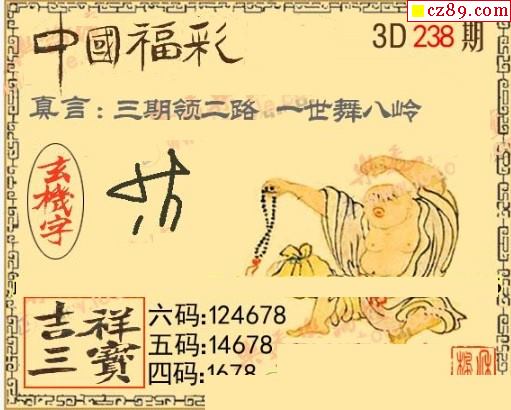 cz89.com
中國福彩
3D 238 期
真言：三期领二路 一世舞八岭
玄機字
吉祥三寶
六码:124678
五码:14678
四码:1678